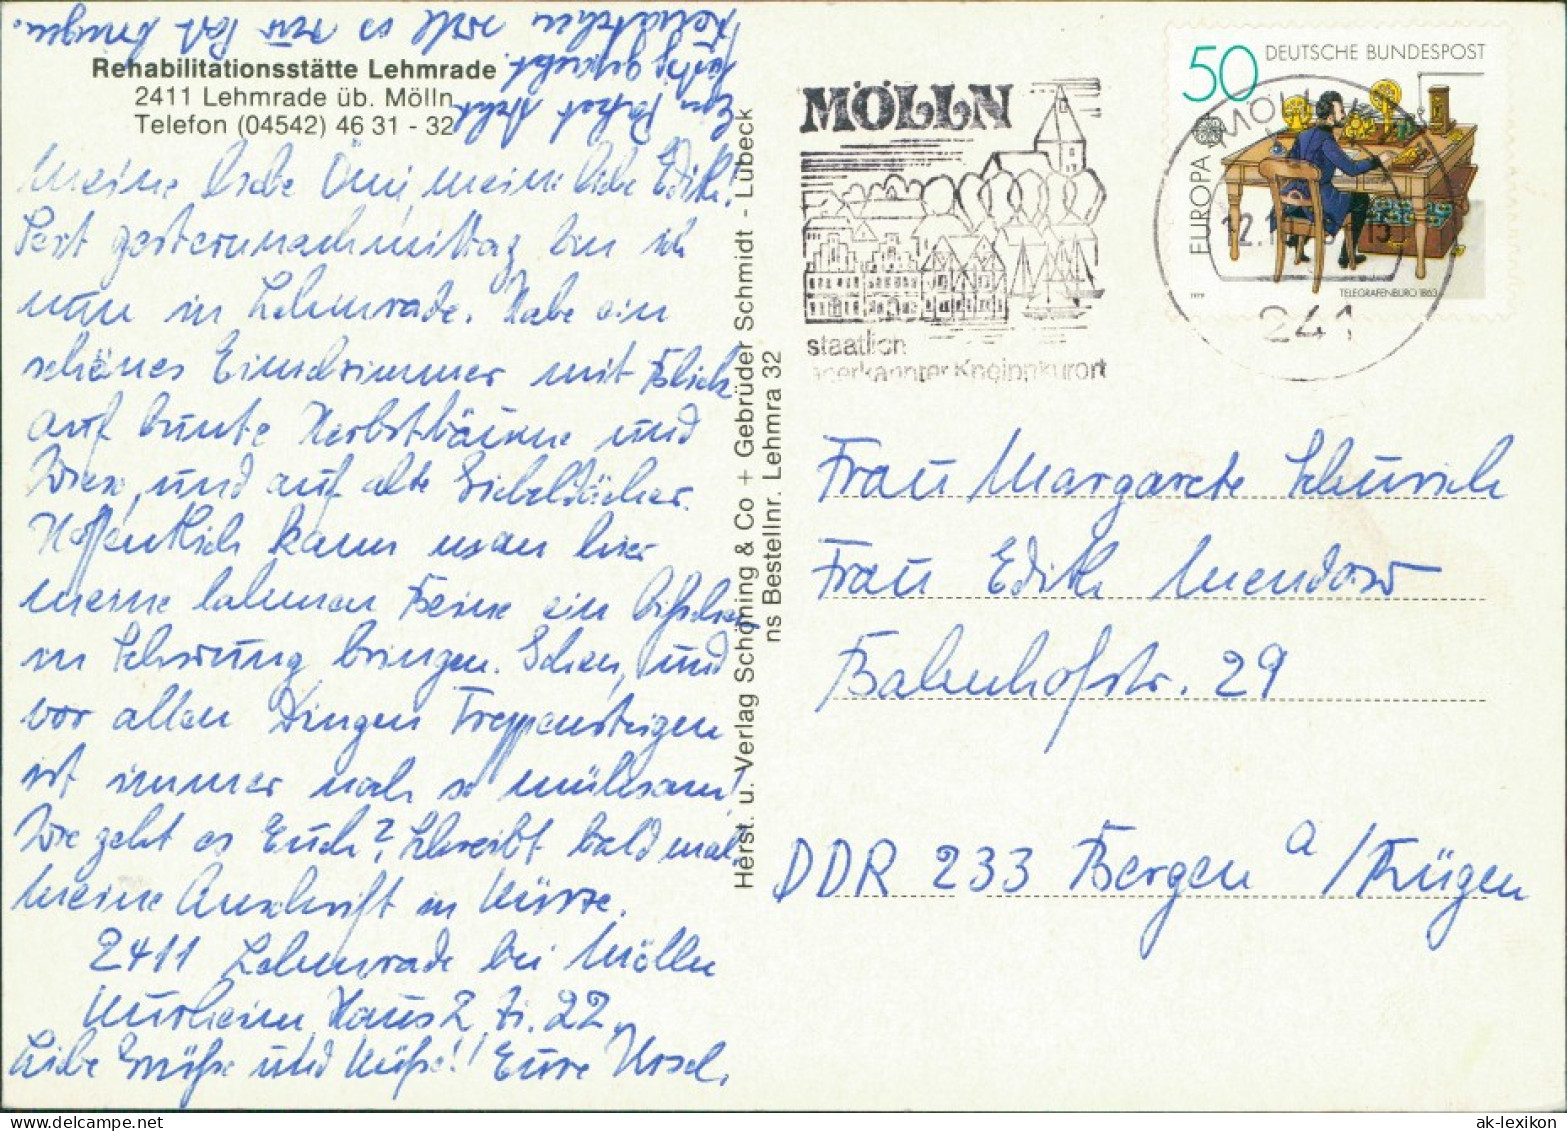 Rehabilitationsstätte Lehmrade
2411 Lehmrade üb. Mölln
Telefon (04542) 46 31 - 32
Meine liebe Omi, meine liebe Edith!
Seit gesternnachmittag bin ich
nun in Lehmrade. Habe ein
schönes Einzelzimmer mit Blick
auf bunte Herbstbäume und
Wiese, und auf alte Giebeldächer.
Hoffentlich kann man hier
meine lahmen Beine ein bißchen
in Schwung bringen. Gehen, und
vor allen Dingen Treppensteigen
ist immer noch so mühsam!
Wie geht es Euch? Schreibt bald mal
meine Anschrift in Kürze.
2411 Lehmrade bei Mölln
Kurheim, Haus 2, Zi. 22.
Liebe Grüße und Küße!! Eure Ursel.
Ein Paket steht
fertig gepackt.
will es zur Post bringen.
Herst. u. Verlag Schöning & Co + Gebrüder Schmidt - Lübeck
ns Bestellnr. Lehmra 32
MÖLLN
staatlich
anerkannter Kneippkurort
50 DEUTSCHE BUNDESPOST
EUROPA
1979
TELEGRAFENBÜRO 1863
MÖLLN
12.1
241
Frau Margarete Schurich
Frau Edith Mendow
Bahnhofstr. 29
DDR 233 Bergen a/Rügen
ak-lexikon